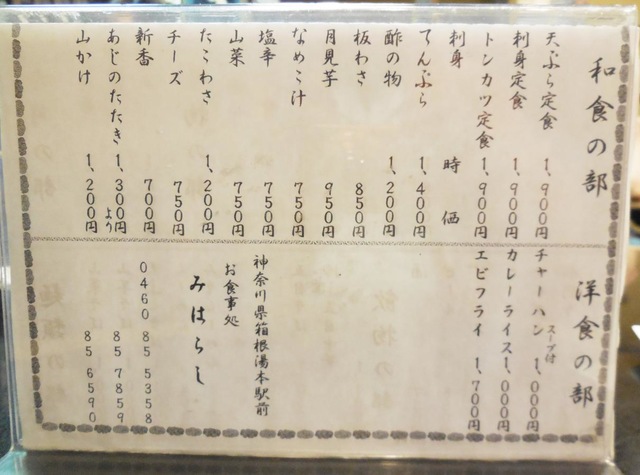 和食の部
天ぷら定食 1,900円
刺身定食 1,900円
トンカツ定食 1,900円
刺身 時価
てんぷら 1,400円
酢の物 1,200円
板わさ 850円
月見芋 950円
なめこ汁 750円
塩辛 750円
山菜 750円
たこわさ 1,200円
チーズ 750円
新香 700円
あじのたたき 1,300円より
山かけ 1,200円
洋食の部
チャーハン スープ付 1,000円
カレーライス 1,000円
エビフライ 1,700円
神奈川県箱根湯本駅前
お食事処
みはらし
0460 85 5358
85 7859
85 6590